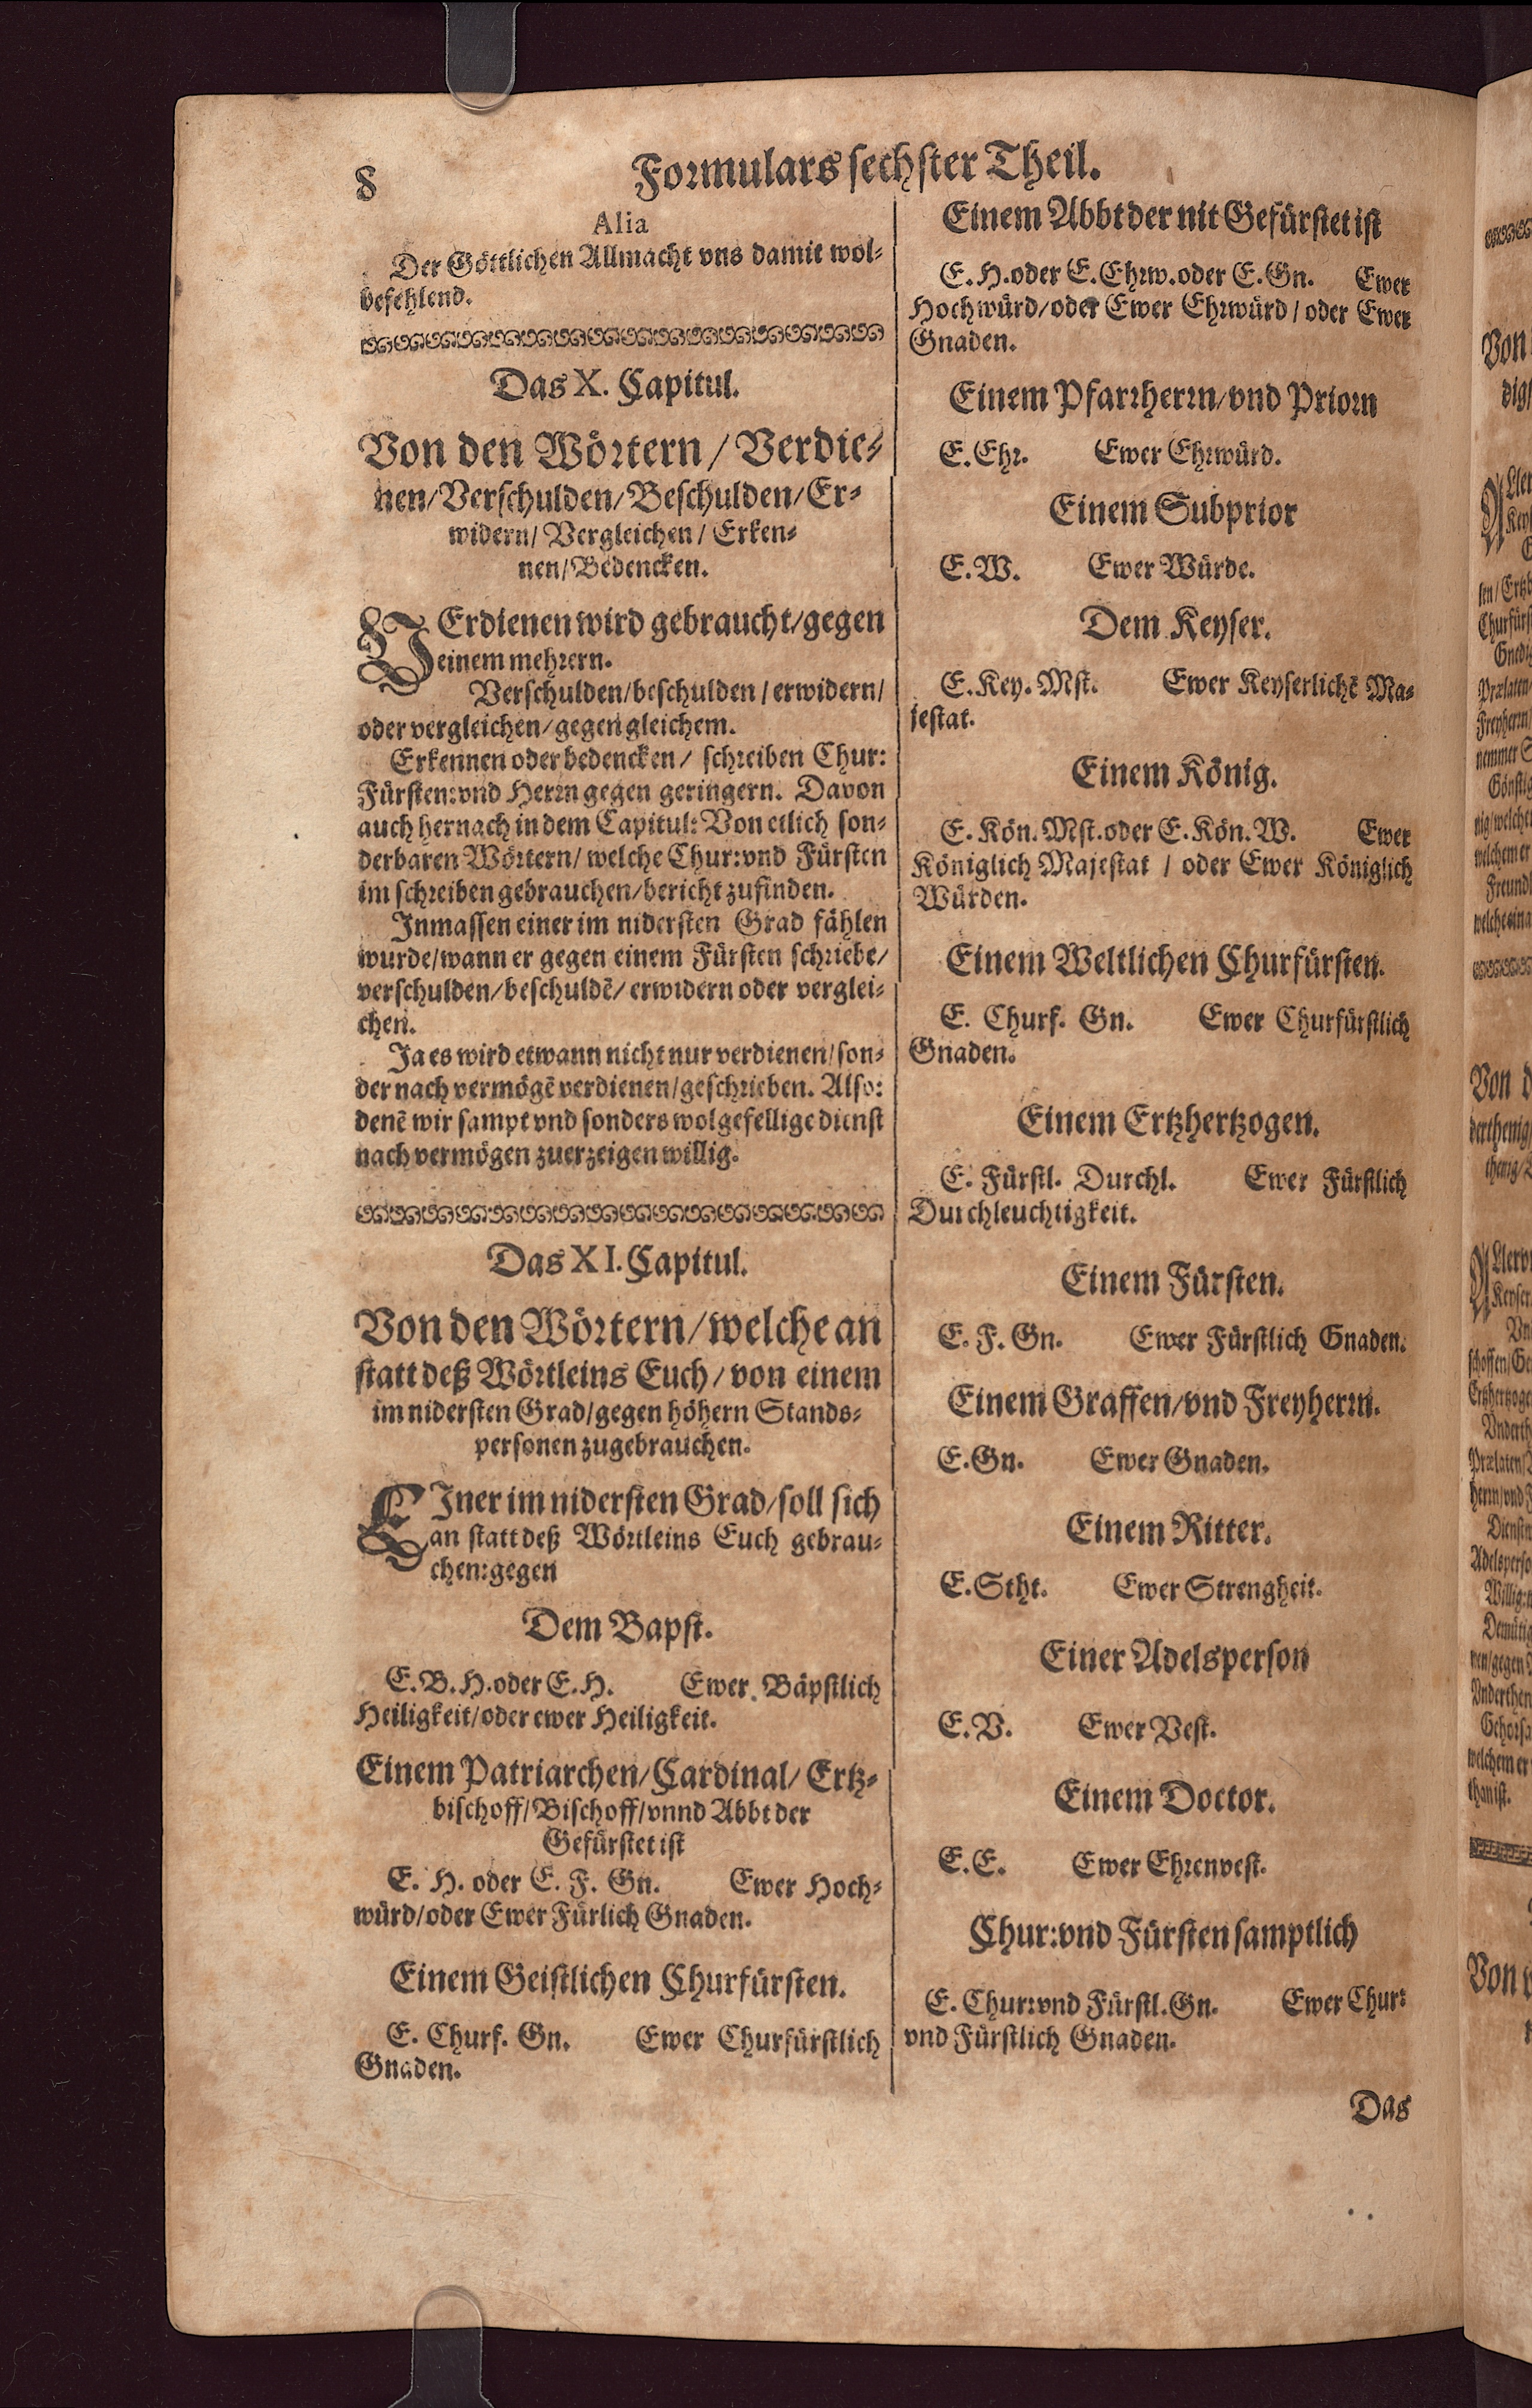 8
Formulars sechster Theil.
Alia
Der Göttlichen Allmacht vns damit wol-
befehlend.
Das X. Capitul.
Von den Wörtern / Verdie-
nen/Verschulden/Beschulden/Er-
widern/ Vergleichen / Erken-
nen/Bedencken.
VErdienen wird gebraucht/gegen
einem mehrern.
Verschulden/beschulden / erwidern/
oder vergleichen/gegen gleichem.
Erkennen oder bedencken/ schreiben Chur:
Fürsten: vnd Herrn gegen geringern. Davon
auch hernach in dem Capitul: Von etlich son-
derbaren Wörtern/ welche Chur: vnd Fürsten
im schreiben gebrauchen/bericht zufinden.
Inmassen einer im nidersten Grad fählen
wurde/wann er gegen einem Fürsten schriebe/
verschulden/beschuldē/ erwidern oder verglei-
chen.
Ja es wird etwann nicht nur verdienen/son-
der nach vermögē verdienen/geschrieben. Also:
denē wir sampt vnd sonders wolgefellige dienst
nach vermögen zuerzeigen willig.
Das XI. Capitul.
Von den Wörtern/welche an
statt deß Wörtleins Euch / von einem
im nidersten Grad/gegen höhern Stands-
personen zugebrauchen.
EIner im nidersten Grad/soll sich
an statt deß Wörtleins Euch gebrau-
chen: gegen
Dem Bapst.
E. B. H. oder E. H. Ewer Bäpstlich
Heiligkeit/oder ewer Heiligkeit.
Einem Patriarchen/Cardinal/ Ertz-
bischoff/Bischoff/vnnd Abbt der
Gefürstet ist
E. H. oder E. F. Gn. Ewer Hoch-
würd/oder Ewer Fürlich Gnaden.
Einem Geistlichen Churfürsten.
E. Churf. Gn. Ewer Churfürstlich
Gnaden.
Einem Abbt der nit Gefürstet ist
E. H. oder E. Ehrw. oder E. Gn. Ewer
Hochwürd/oder Ewer Ehrwürd / oder Ewer
Gnaden.
Einem Pfarrherrn/vnd Priorn
E. Ehr. Ewer Ehrwürd.
Einem Subprior
E. W. Ewer Würde.
Dem Keyser.
E. Key. Mst. Ewer Keyserlichē Ma-
jestat.
Einem König.
E. Kön. Mst. oder E. Kön. W. Ewer
Königlich Majestat / oder Ewer Königlich
Würden.
Einem Weltlichen Churfürsten.
E. Churf. Gn. Ewer Churfürstlich
Gnaden.
Einem Ertzhertzogen.
E. Fürstl. Durchl. Ewer Fürstlich
Durchleuchtigkeit.
Einem Fürsten.
E. F. Gn. Ewer Fürstlich Gnaden.
Einem Graffen/vnd Freyherrn.
E. Gn. Ewer Gnaden.
Einem Ritter.
E. Stht. Ewer Strengheit.
Einer Adelsperson
E. V. Ewer Vest.
Einem Doctor.
E. E. Ewer Ehrenvest.
Chur: vnd Fürsten samptlich
E. Chur: vnd Fürstl. Gn. Ewer Chur:
vnd Fürstlich Gnaden.
Das